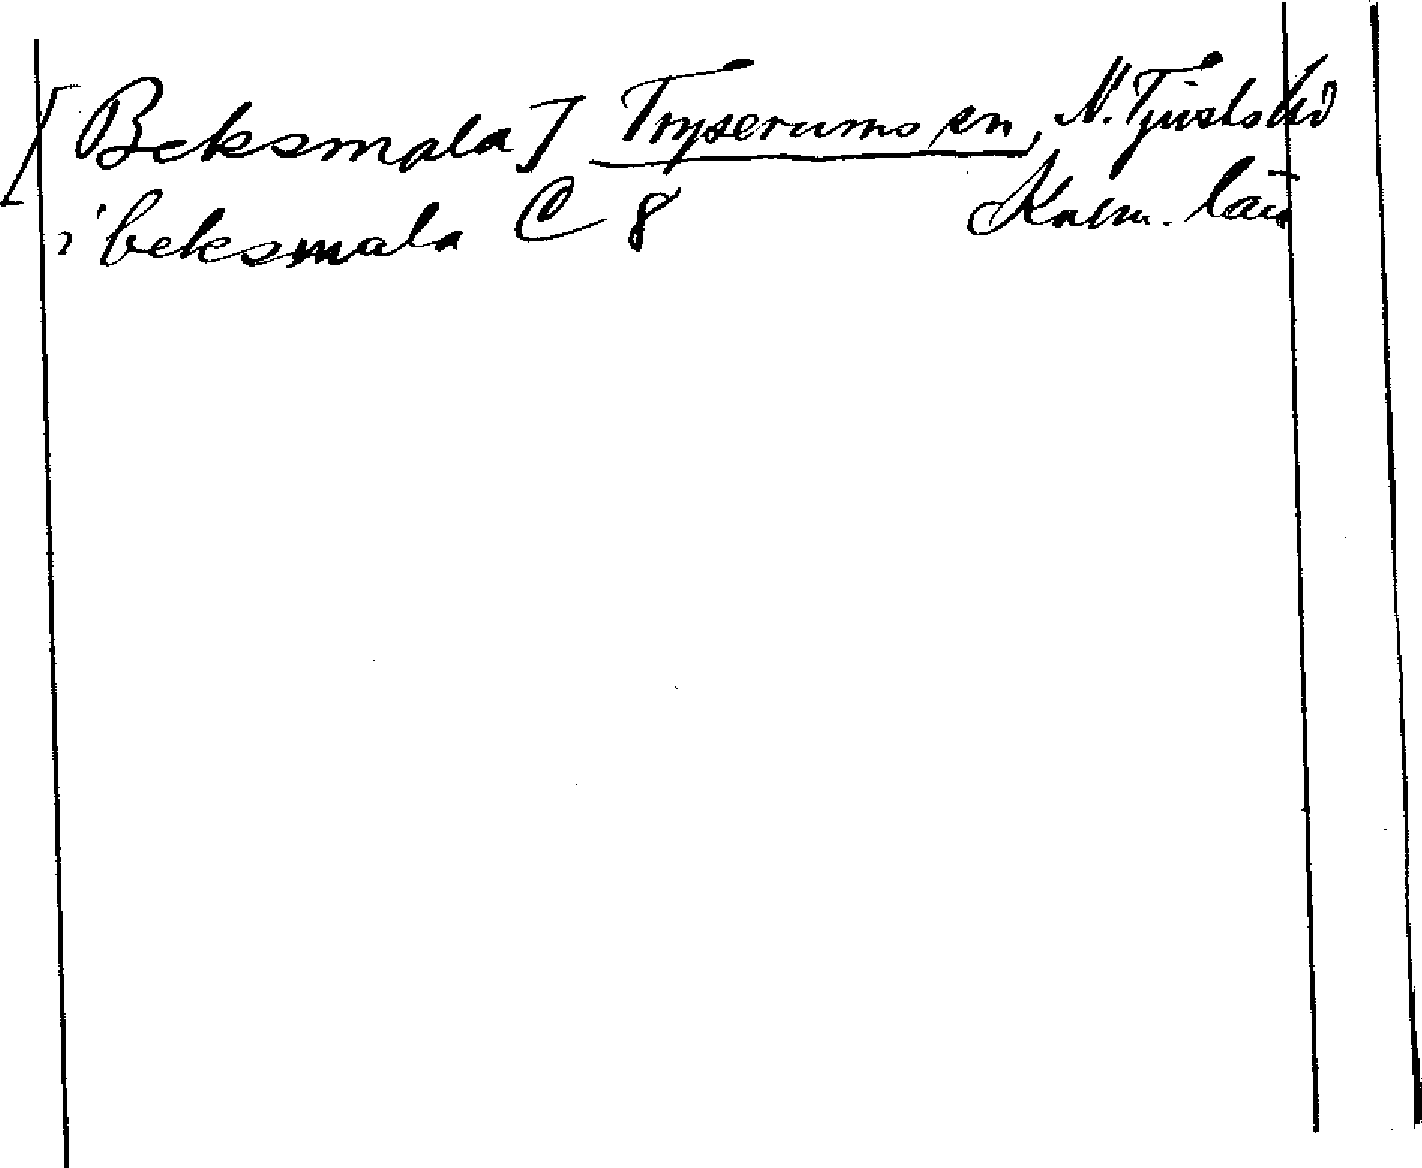 [Beksmala] Tryserums sn, N. Tjusts hd
i beksmala C 8 Kalm. län